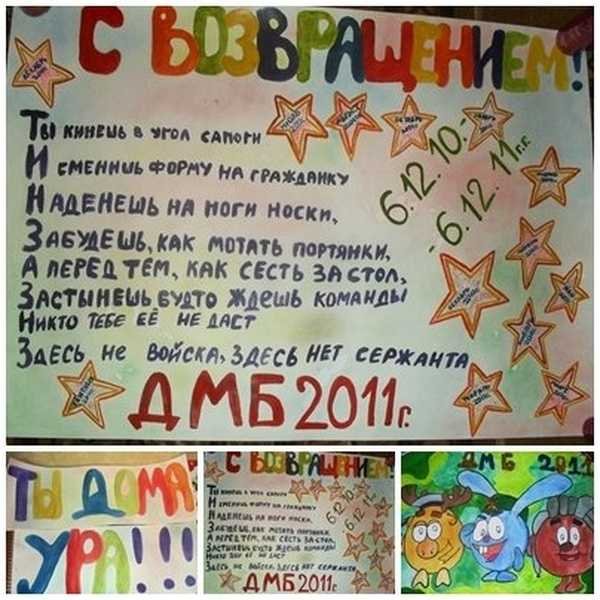 С ВОЗВРАЩЕНИЕМ!
Ты кинешь в угол сапоги
И сменишь форму на гражданку
Наденешь на ноги носки,
Забудешь, как мотать портянки,
А перед тем, как сесть за стол,
Застынешь будто ждешь команды
Никто тебе её не даст
Здесь не войска, здесь нет сержанта
6.12.10-
-6.12.11г.г.
ДМБ 2011г.
ТЫ ДОМА
УРА!!!
С ВОЗВРАЩЕНИЕМ
Ты кинешь в угол сапоги
И сменишь форму на гражданку
Наденешь на ноги носки,
Забудешь, как мотать портянки,
А перед тем, как сесть за стол,
Застынешь будто ждешь команды
Никто тебе её не даст
Здесь не войска, здесь нет сержанта
ДМБ 2011г.
ДМБ 2011